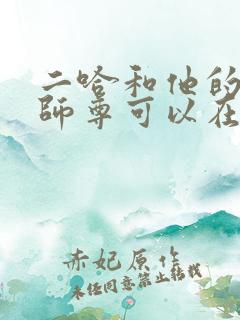 二哈和他的
師尊可以在
赤妃原作
未任同意禁止转载